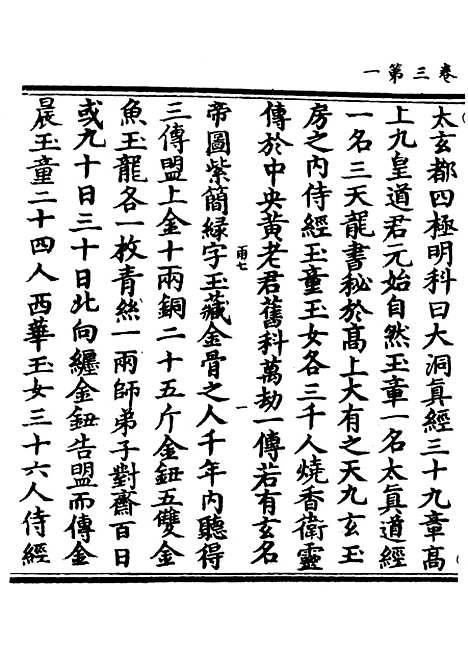 卷三第一
太玄都四極明科曰大洞眞經三十九章高
上九皇道君元始自然玉章一名太眞道經
一名三天龍書秘於高上大有之天九玄玉
房之內侍經玉童玉女各三千人燒香衛靈
傳於中央黃老君舊科萬劫一傳若有玄名
雨七
一
帝圖紫簡緑字玉藏金骨之人千年內聽得
三傳盟上金十兩銅二十五斤金鈕五雙金
魚玉龍各一枚青絲一兩師弟子對齋百日
或九十日三十日北向纏金鈕告盟而傳金
晨玉童二十四人西華玉女三十六人侍經